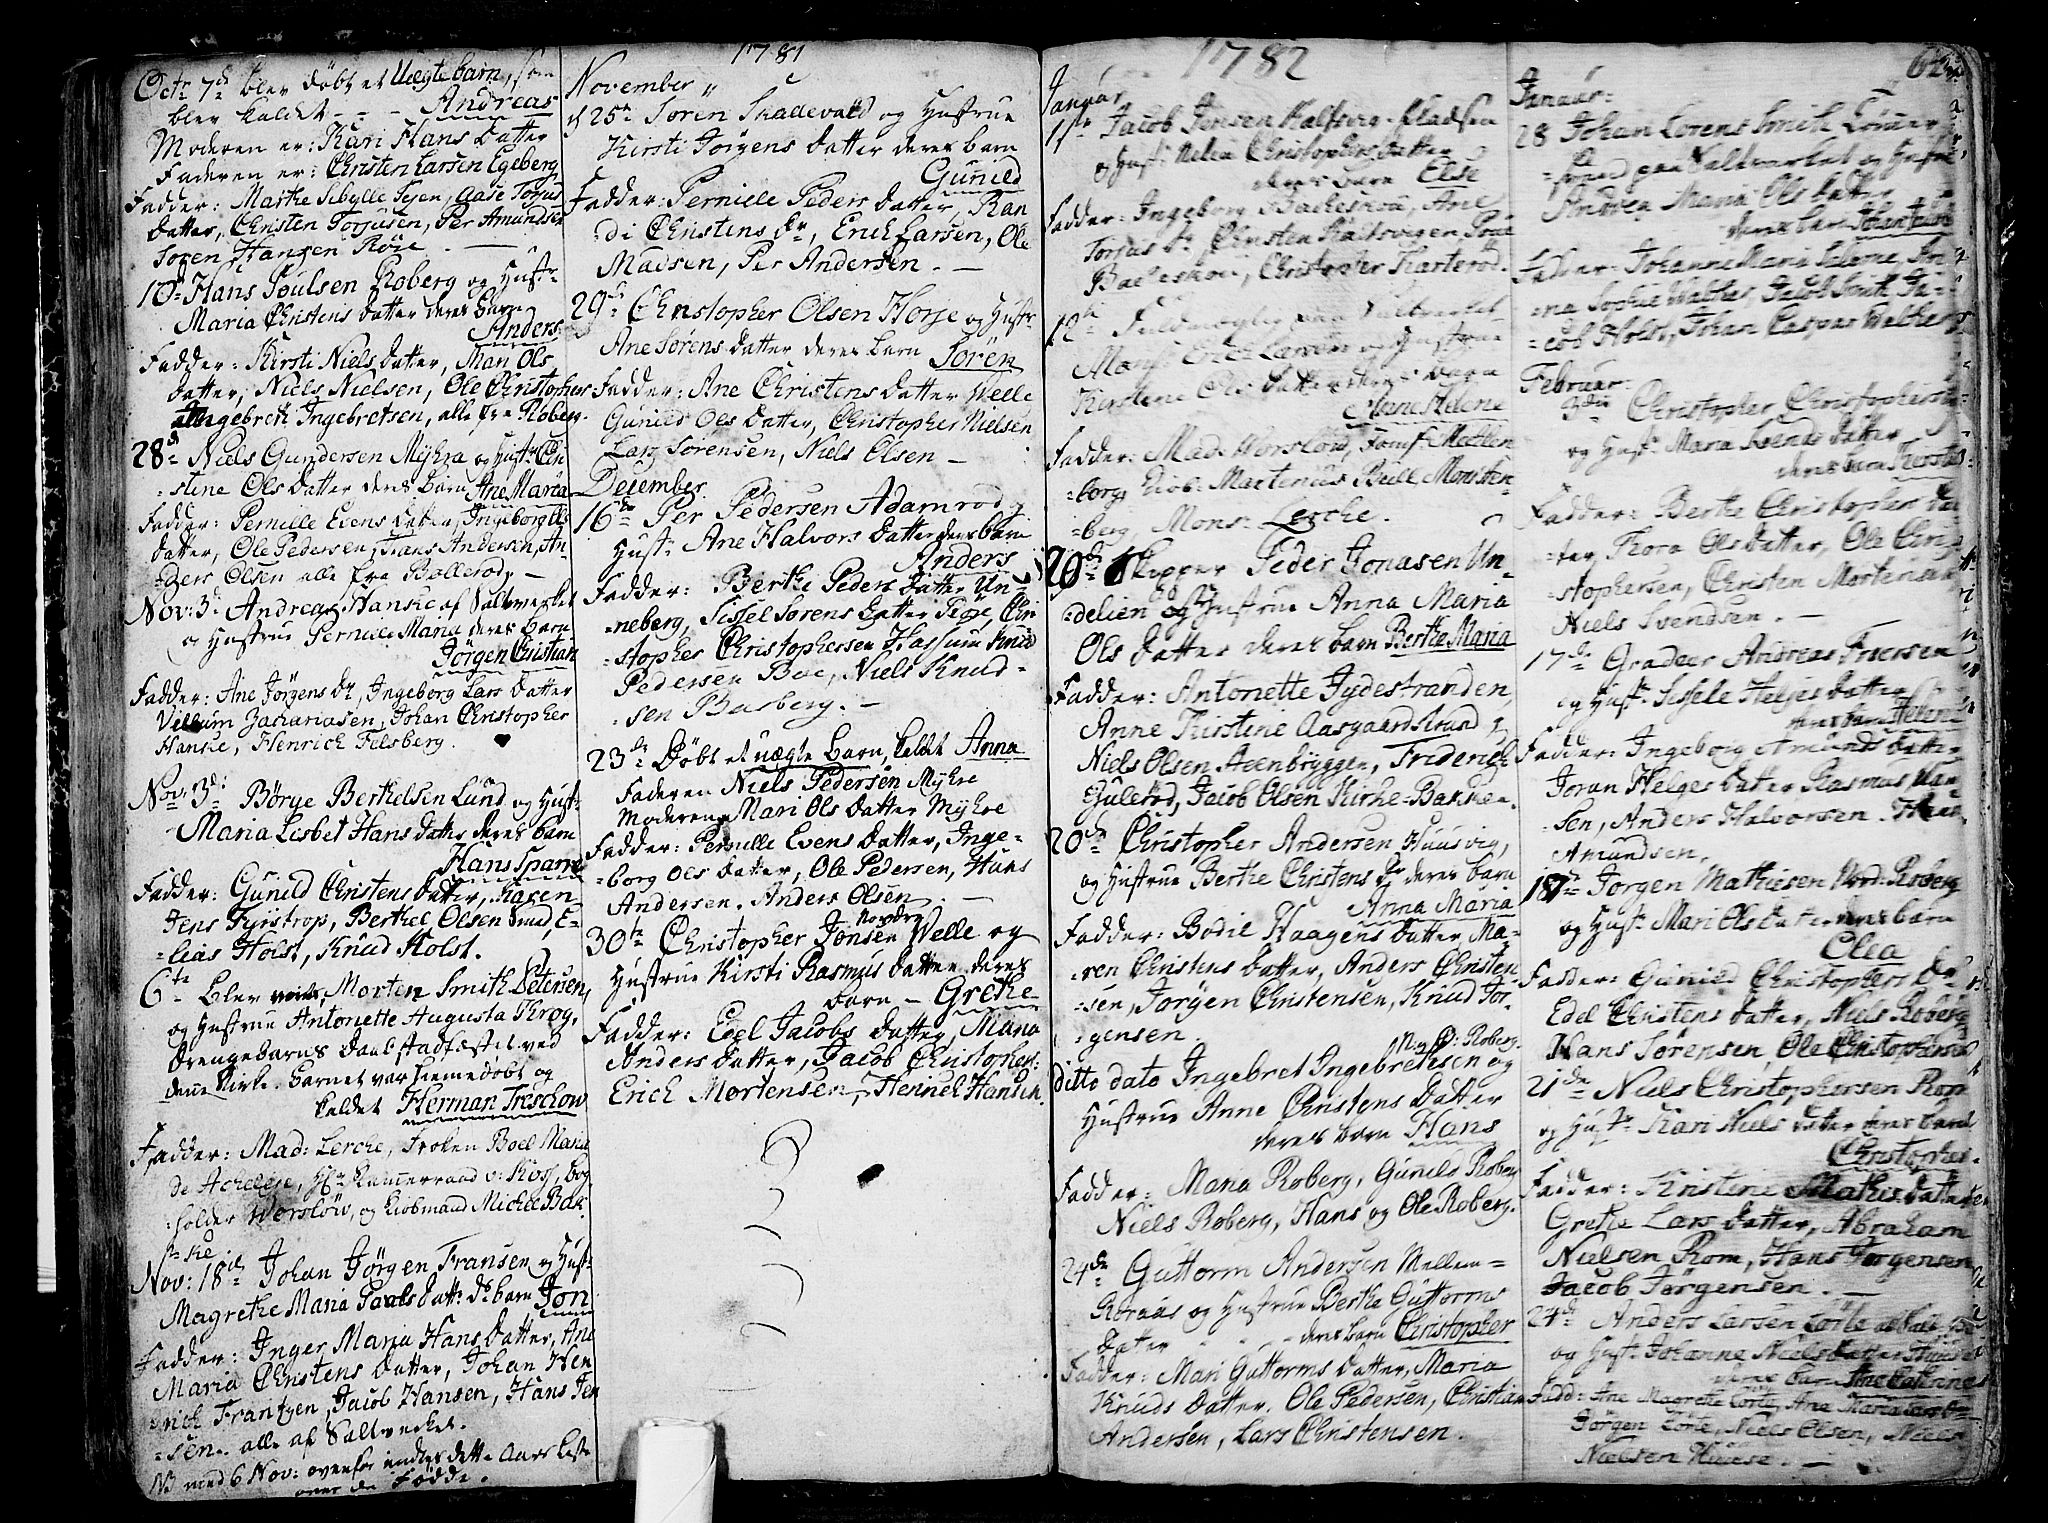 Octr 7de blev döbt et Uægte barn, som
blev kaldet - - - Andreas
Moderen er: Kari Hans Datter
Faderen er: Christen Larsen Egeberg
Fadder: Marthe Sibylle Fejen, Aase Torjus
Datter, Christen Torjusen, Per Amundsen
Sören Hansen Röie
10de Hans Poulsen Roberg og Hustr
Maria Christens Datter deres Barn
Anders
Fadder: Kirsti Niels Datter, Mari Ols
Datter, Niels Nielsen, Ole Christophers
Ingebreth Ingebretsen, alle fra Roberg.
28de Niels Gundersen Myhra og Hustr Chri
-stine Ols Datter deres barn Ane Maria
Fadder: Pernille Evens Datter, Ingeborg Ols
Datter, Ole Pedersen, Hans Andersen, An
-ders Olsen alle fra Bollerød. -
Nov: 3de Andreas Hanske af Saltverket
og Hustrue Pernille Maria deres barn
Jörgen Christian
Fadder: Ane Jörgens Dr, Ingeborg Lars Datter
Villum Zachariasen, Johan Christopher
Hanske, Henrich Felsberg.
Nov: 3de: Börge Berthelsen Lund og Hust:
Maria Lisbet Hans datter deres barn
Hans Sparre
Fadder: Gunild Christens Datter, Karen
Jens Fyristrop, Berthel Olsen Smed, E-
-lias Holst, Knud Holst.
6te Blev Morten Smith Petersen,
og Hustrue Antonette Augusta Krog,
Drengebarns Daab stadfæstet ved
dene Kirke. Barnet var hiemedöbt og
kaldet Herman Treschow
Fadder: Mad: Lerche, Froken Boel Maria
de Acheleye, Hr Kamerraad v: Kioss, bog
-holder Worslöw, og Kiobmand Michel Bak
-ke
Nov: 18de Johan Jörgen Fransen og Hust:
Magrethe Maria Paals Datt: Ds barn Jon
Fadder: Inger Maria Hans Datter, Ane
Maria Christens Datter, Johan Hen
-rich Frantzen, Jacob Hansen, Hans Jen
-sen. alle af Saltverket.
NB med 6 Nov: ovenfor endes dette Aars liste
over de Födde.
1781
November "
d 25de Sören Skadevald og Hustrue
Kirsti Jörgens Datter deres barn
Gunild
Fadder: Pernille Peders Datter, Ran
-di Christens Dr, Erich Larsen, Ole
Madsen, Per Andersen. -
29de Christopher Olsen Horje og Hustr
Ane Sörens Datter deres barn Sören
Fadder: Ane Christens Datter Welle
Gunild Ols Datter, Christopher Nielsen
Lars Sörensen, Niels Olsen -
December.
16de Per Pedersen Adamrod og
Hust: Ane Halvors Datter deres barn
Anders
Fadder: Berthe Peders Datter Un-
-neberg, Sissel Sörens Datter Sege, Chri
-stopher Christophersen Hassum Knud
Pedersen Boe, Niels Knud-
-sen Basberg. -
23de Döbt et uægte barn, kaldet Anna
Faderen Niels Pedersen Myhre
Moderen Mari Ols Datter Myhre
Fadder: Pernille Evens Datter, Inge-
-borg Ols Datter, Ole Pedersen, Hans
Andersen. Anders Olsen. -
Nordre
30te Christopher Jonsen Velle og
Hustrue Kirsti Rasmus Datter deres
barn - Grethe
Fadder: Edel Jacobs Datter, Maria
Anders Datter, Jacob Christophers:
Erich Mortensen, Henrich Hansen.
1782
Januar
1ste Jacob Jensen Kalfsvig-Pladsen
og Hust: Helen Christophers Datter
deres barn Else
Fadder: Ingeborg Bacheskou, Ane
Torjus Dr. Christen Kalfsvigen Poul
Bacheskou, Christopher Harteröd.
12te Fuldmægtig paa Saltverket
Mons: Larsen og Hustrue
Kirstine Ols Datter deres barn
Anne Helene
Fadder: Mad: Worslöw, Jomf: Mechlen
-borg, Kiob: Martenus Bull, Mons Sten-
-berg, Mons: Lerche.
20de Skipper Peder Jonasen Un-
-delien og Hustrue Anna Maria
Ols Datter deres barn Berthe Maria
Fadder: Antonette Jydestranden,
Anne Kirstine Aasgaardstrand,
Niels Olsen Steenbryggen, Friderich
Gulerød, Jacob Olsen Kirke-Bakken.
20de Christopher Andersen Huusvig,
og Hustrue Berthe Christens Dr deres barn
Anna Maria
Fadder: Bodil Haagens Datter, Ma-
-ren Christens Datter, Anders Christen
-sen, Jörgen Christensen, Knud Jör-
-gensen
Roberg.
ditto dato Ingebret Ingebretesen og
Hustrue Anne Christens Datter
deres barn Hans
Fadder: Maria Roberg, Gunild Roberg
Niels Roberg, Hans og Ole Roberg.
24de Guttorm Andersen Mellem=
Roraas og Hustrue Berthe Guttorms
Dater - - deres barn Christopher
Fadder: Mari Guttorms Datter, Maria
Knuds Datter. Ole Pedersen, Christian
Andersen, Lars Christensen.
62
Januar:
28 Johan Lorens Smith
paa Saltverket og Hustrue
Andrea Maria Ols Datter
deres barn Johan Jacob
Fadder: Johanne Maria Salome, An
-na Sophie Walther, Jacob Smith, Ja-
-cob Holst, Johan Caspar Walther
Februar:
3die Christopher Christophersen
og Hust: Mara Svends Datter
deres barn
Fadder: Berthe Christopher Dat
-ter, Thora Ols Datter, Ole Chri-
stophersen, Christen Mortensen
Niels Svendsen. -
17de Gradeer Andreas Friersen
og Hust: Sissele Helges Datter
deres barn Helene
Fadder: Ingeborg Amunds Datter
Joran Helges Datter Rasmus Han-
sen, Anders Halvorsen. Hans
Amundsen.
17de Jorgen Mathiesen Nord: Roberg
og Hust: Mari Ols Datter deres barn
Olea
Fadder: Gunild Christophers Dr
Edel Christens Datter, Niels Roberg
Hans Sörensen, Ole Christophersen
21de Niels Christophersen Rom
og Hust: Kari Niels Datter deres barn
Christopher.
Fadder: Kirstine Mathis Datter
Grethe Lars Datter, Abraham
Nielsen Rom, Hans Jörgensen
Jacob Jörgensen. -
24de Anders Larsen Lörte
og Hust: Johanne Niels Datter Huuse
deres barn Ane Catrine
Fadd: Ane Magrete Lörte, Ane Maria Lars Dr
Jörgen Lörte, Niels Olsen, Niels
Nielsen Huuse. -